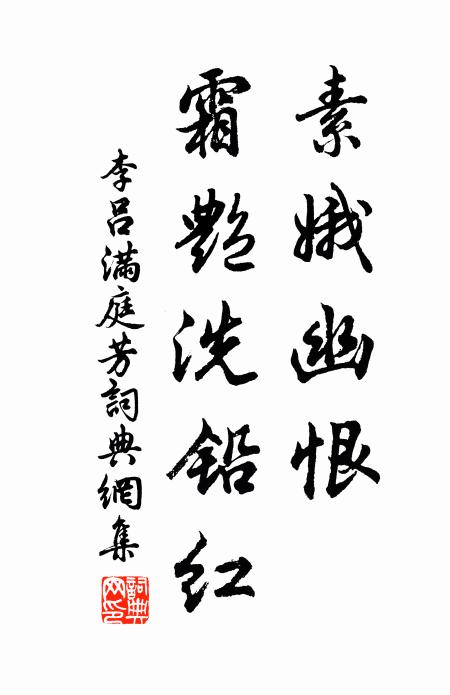 素娥幽恨
霜艷洗鉛紅
李吕滿庭芳詞典網集
詞典網印